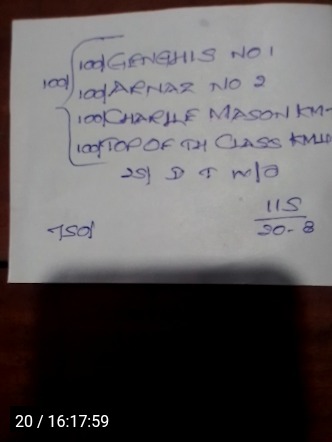 100/ GENGHIS NO 1
100/ 100/ ARNAZ NO 2
100/ CHARLIE MASON KM-
100/ TOP OF TH CLASS KM
25/ D T m/a
115
750/ 20-8
20 / 16:17:59